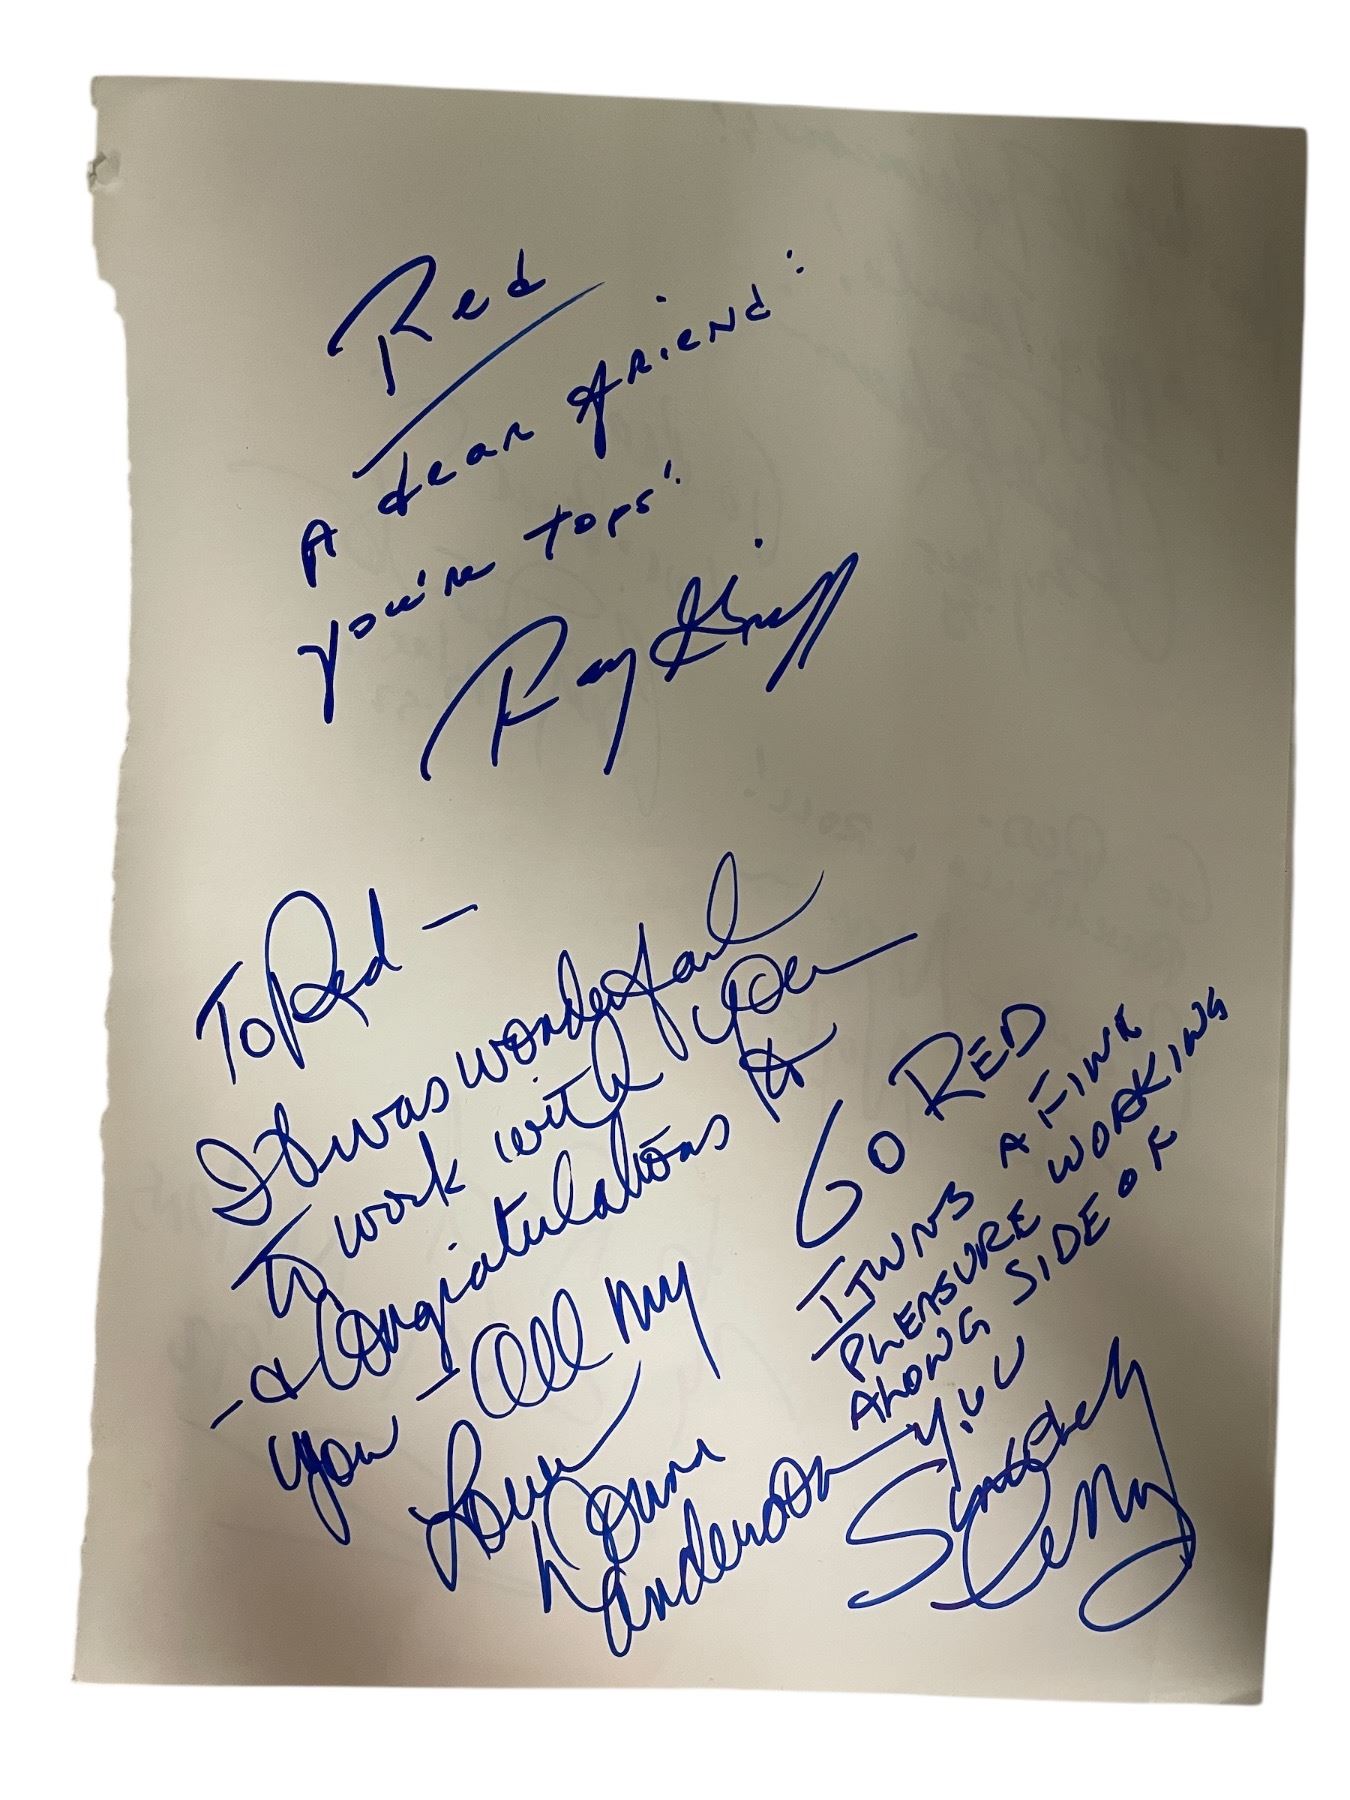 Red
A dear friend:
you're tops!
Ray Griff
To Red —
It was wonderful
to work with you
— & Congratulations to
you — All my
Love
Lynn
Anderson
GO RED
IT WAS A FINE
PLEASURE WORKING
ALONG SIDE OF
YOU